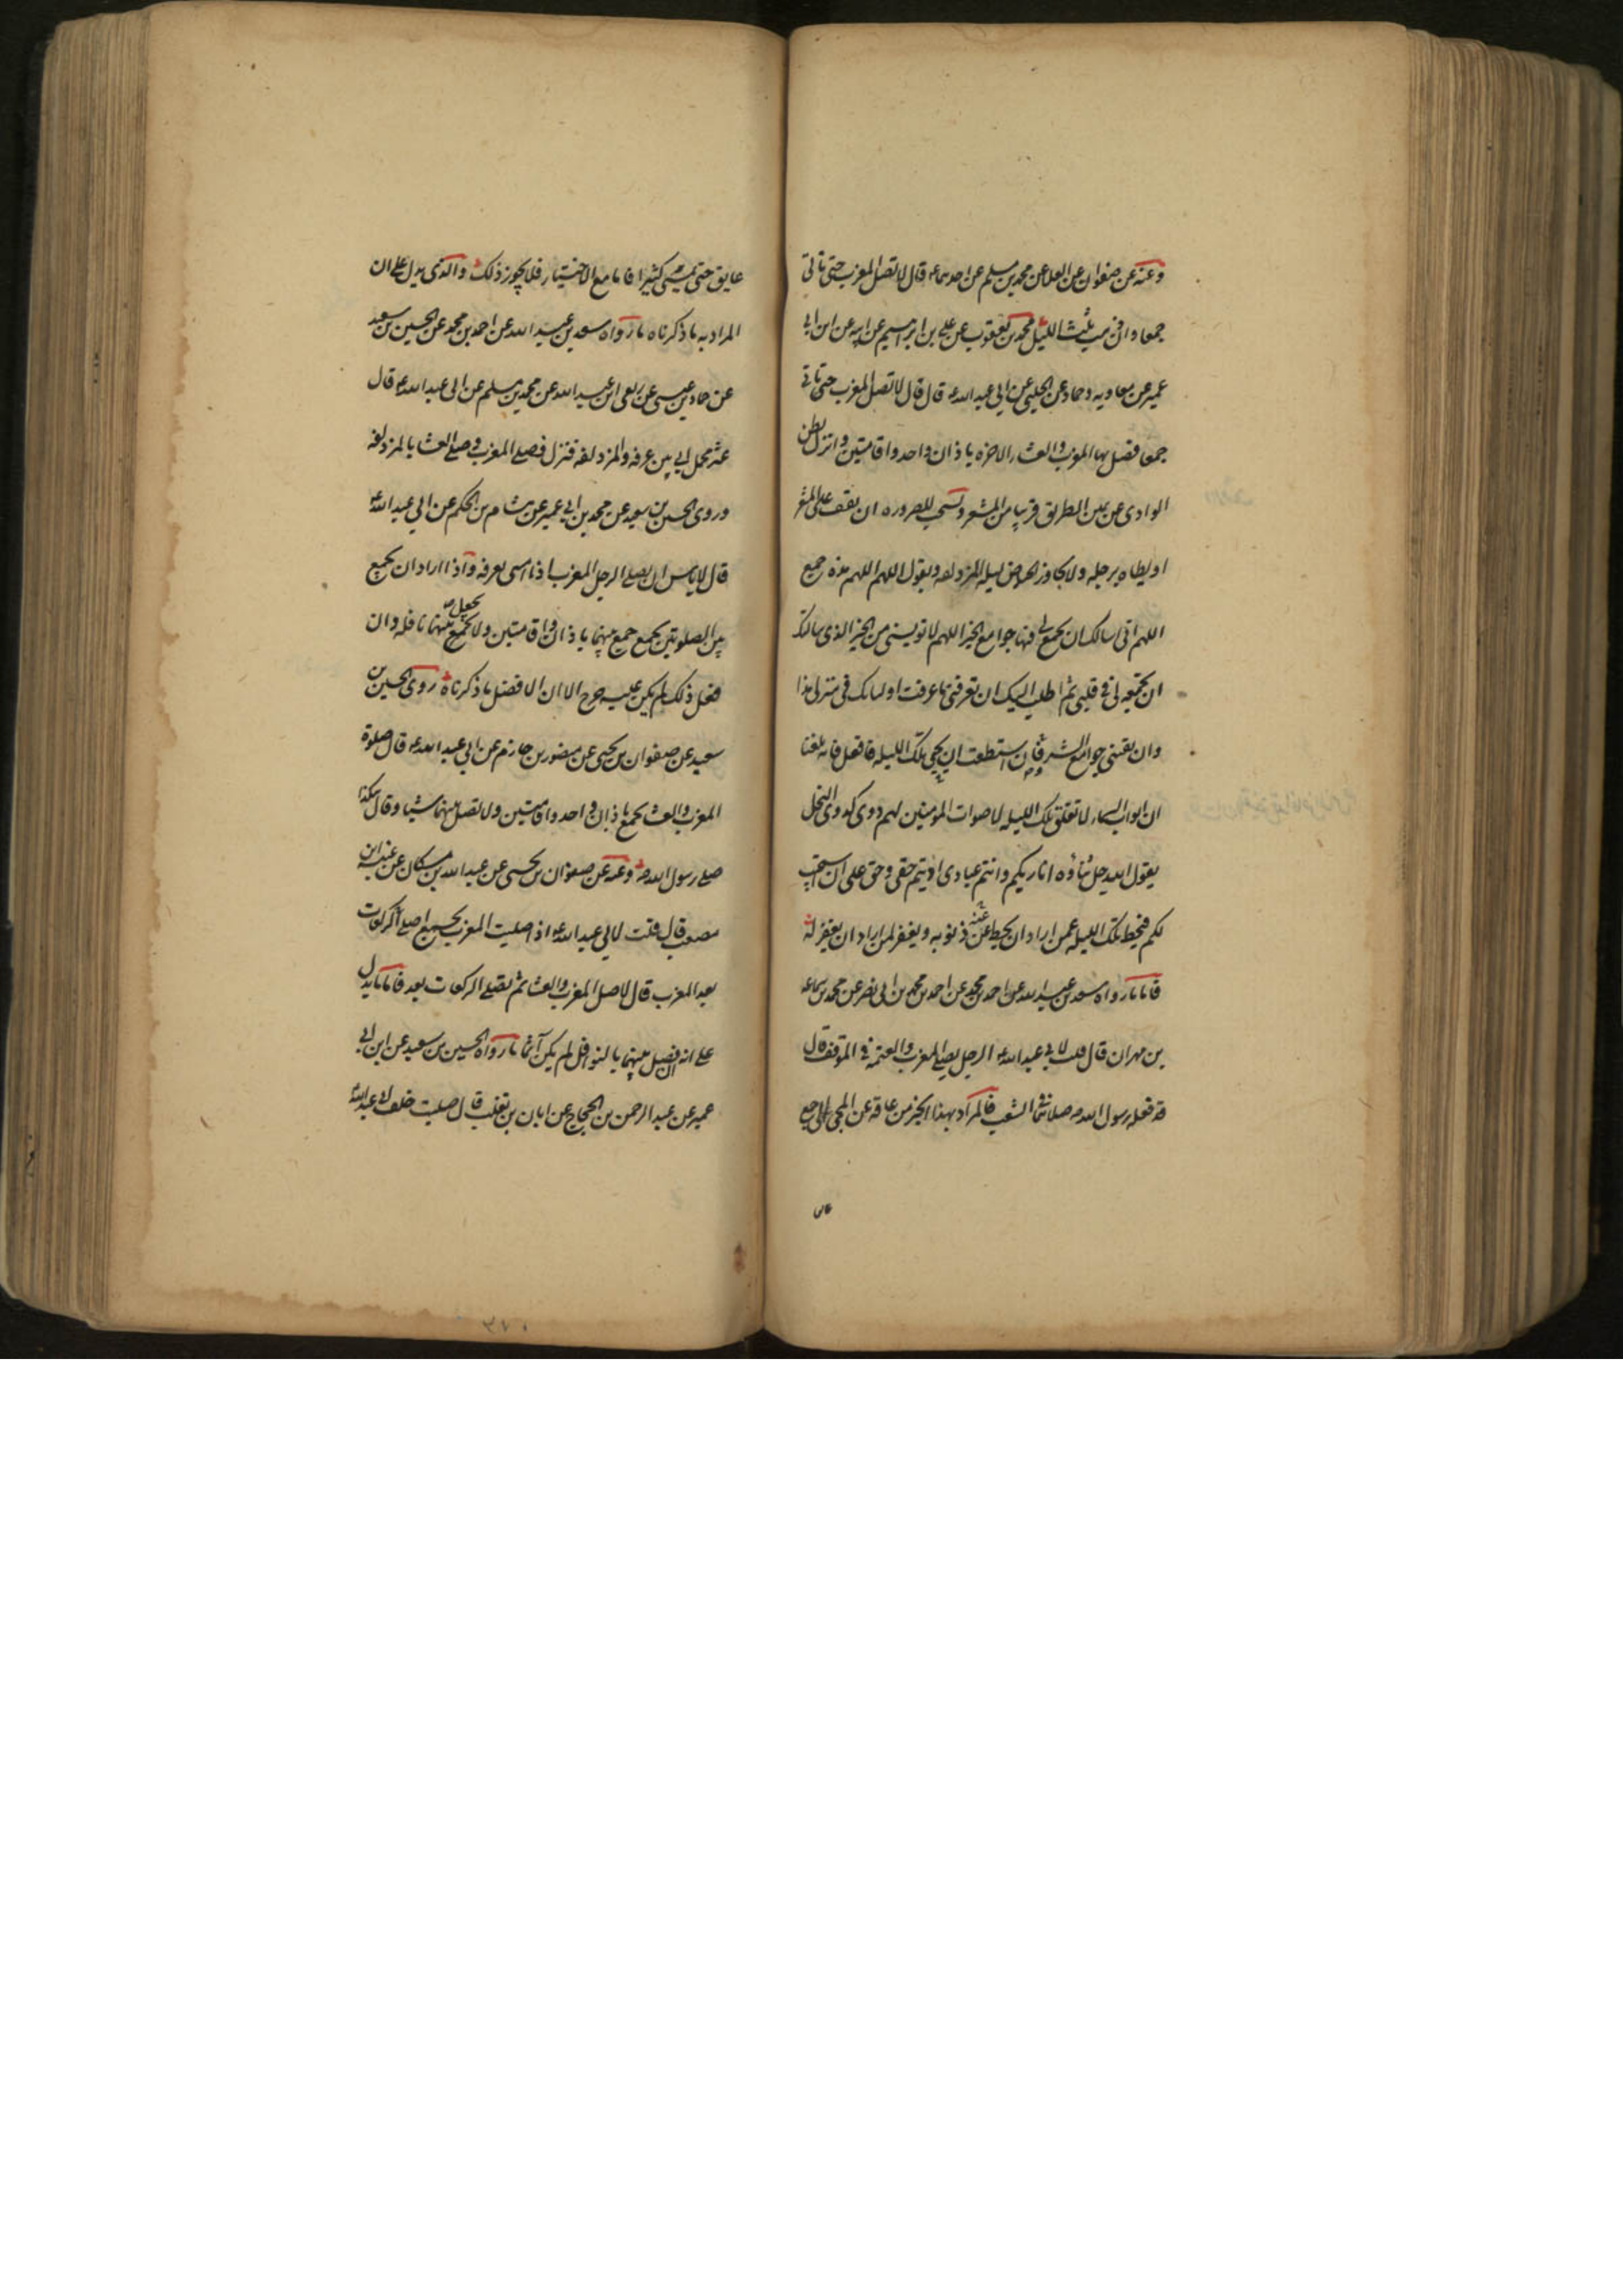 وعنه عن صفوان عن العلا عن محمد بن مسلم عن احدهما ع قال لا تصل المغرب حتى تاتي
جمعا وان ذهب ثلث الليل محمد بن يعقوب عن علي بن ابرهيم عن ابيه عن ابن ابي
عمير عن معاويه وحماد عن الحلبي عن ابي عبد الله ع قال قال لا تصل المغرب حتى تاتي
جمعا فصل بها المغرب والعشاء الاخره باذان واحد واقامتين وانزل بطن
الوادي عن يمين الطريق قريبا من المشعر ويستحب للصروره ان يقف على المشعر
او يطاه برجله ولا يجاوز الحياض ليله المزدلفه ويقول اللهم اللهم هذه جمع
اللهم اني اسالك ان تجمع لي فيها جوامع الخير اللهم لا تويسني من الخير الذي سالتك
ان تجمعه لي في قلبي ثم اطلب اليك ان تعرفني ما عرفت اوليائك في منزلي هذا
وان تقيني جوامع الشر وان استطعت ان تحيي تلك الليله فافعل فانه بلغنا
ان ابواب السماء لا تغلق تلك الليله لاصوات المومنين لهم دوي كدوي النحل
يقول الله جل ثناؤه انا ربكم وانتم عبادي اديتم حقي وحق علي ان استجيب
لكم فيحط تلك الليله عمن اراد ان يحط عنه ذنوبه ويغفر لمن اراد ان يغفر له
فاما ما رواه سعد بن عبد الله عن احمد بن محمد عن احمد بن محمد بن ابي نصر عن محمد بن سماعه
بن مهران قال قلت لابي عبد الله ع الرجل يصلي المغرب والعتمه في الموقف قال
قد فعله رسول الله ص صلاهما في الشعب فالمراد بهذا الخبر من عاقه عن المجي الى جمع
عايق
عايق حتى يمسي كثيرا فاما مع الاختيار فلا يجوز ذلك والذي يدل على ان
المراد به ما ذكرناه ما رواه سعد بن عبد الله عن احمد بن محمد عن الحسين بن سعيد
عن حماد بن عيسى عن ربعي ابن عبد الله عن محمد بن مسلم عن ابي عبد الله ع قال
عثر محمل ابي بين عرفه والمزدلفه فنزل فصلى المغرب وصلى العشا بالمزدلفه
وروى الحسين بن سعيد عن محمد بن ابي عمير عن هشام بن الحكم عن ابي عبد الله ع
قال لا باس ان يصلي الرجل المغرب اذا امسى بعرفه واذا اراد ان يجمع
بين الصلوتين يجمع جمع بينهما باذان واقامتين ولا يجعل بينهما نافله وان
فعل ذلك لم يكن عليه حرج الا ان الافضل ما ذكرناه روى الحسين بن
سعيد عن صفوان بن يحيى عن منصور بن حازم عن ابي عبد الله ع قال صلوة
المغرب والعشا بجمع باذان واحد واقامتين ولا تصل بينهما شيا وقال هكذا
صلى رسول الله ص وعنه عن صفوان بن يحيى عن عبد الله بن مسكان عن عنبسه ابن
مصعب قال قلت لابي عبد الله ع اذا صليت المغرب بجمع اصلي الركعات
بعد المغرب قال لا صل المغرب والعشا ثم تصلي الركعات بعد فاما ما يدل
على انه ان فصل بينهما بالنوافل لم يكن آثما ما رواه الحسين بن سعيد عن ابن ابي
عمير عن عبد الرحمن بن الحجاج عن ابان بن تغلب قال صليت خلف ابي عبد الله ع